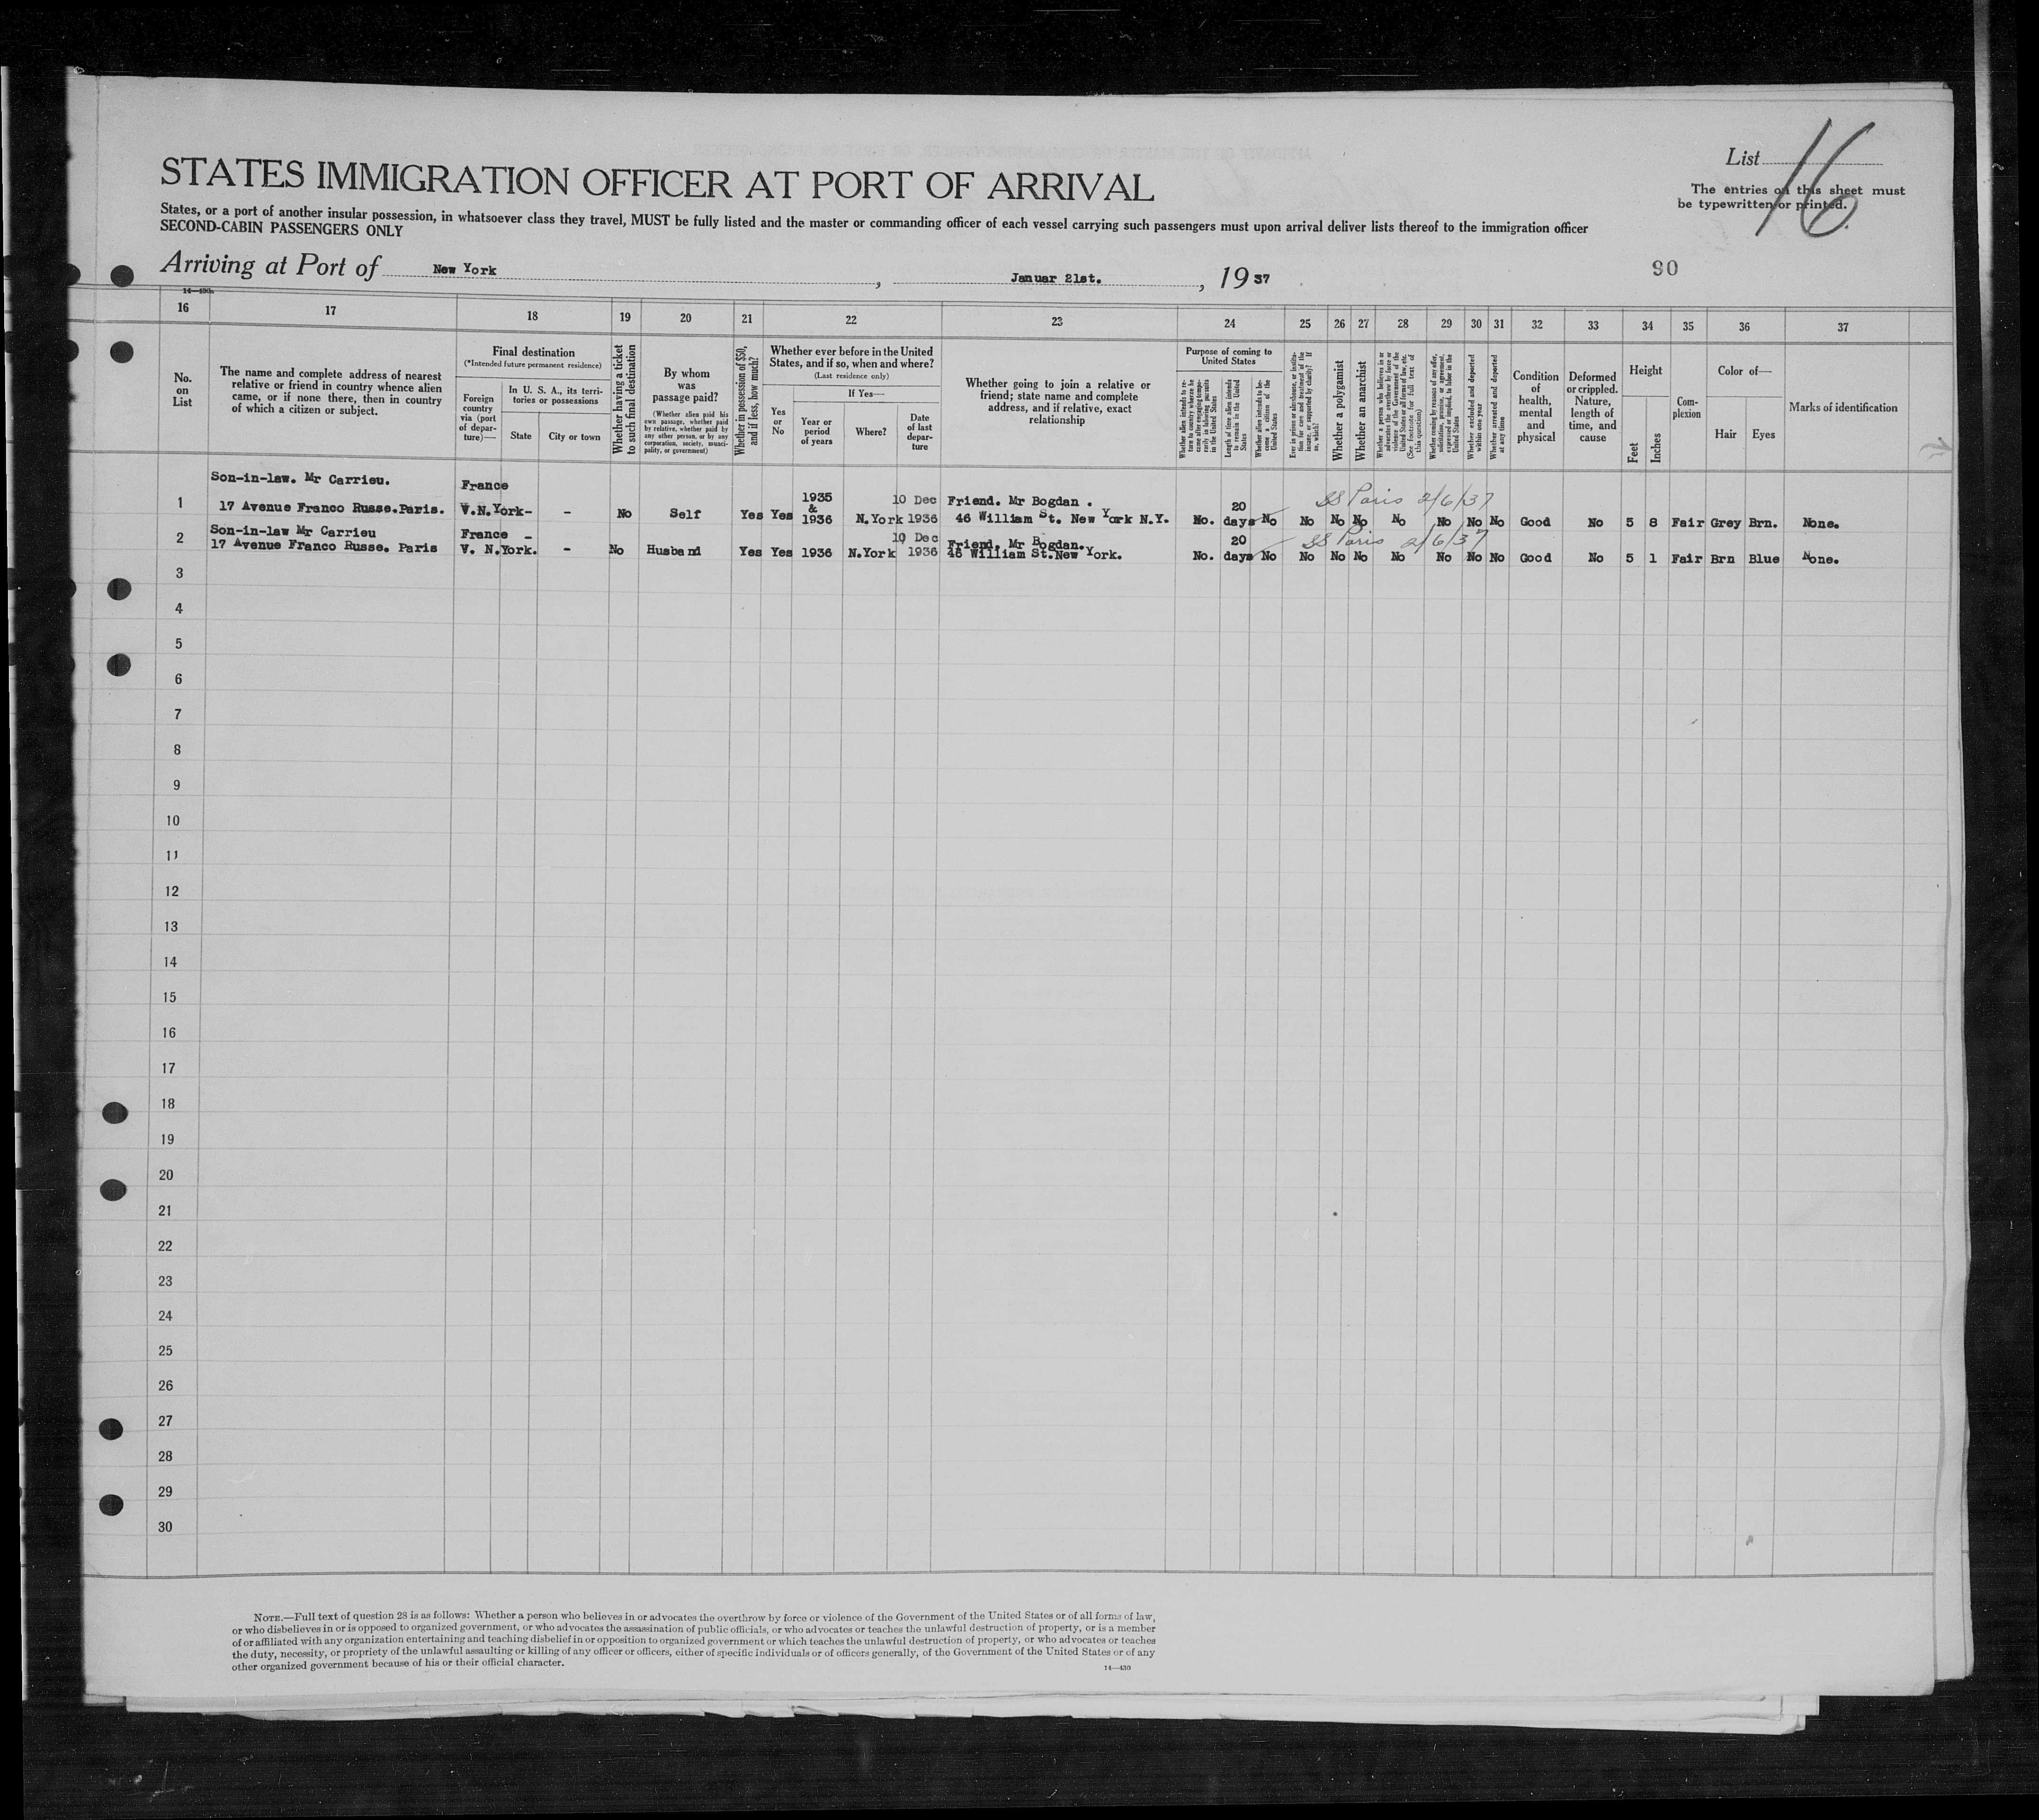 List 16
The entries on this sheet must
be typewritten or printed.
STATES IMMIGRATION OFFICER AT PORT OF ARRIVAL
States, or a port of another insular possession, in whatsoever class they travel, MUST be fully listed and the master or commanding officer of each vessel carrying such passengers must upon arrival deliver lists thereof to the immigration officer
SECOND-CABIN PASSENGERS ONLY
Arriving at Port of New York, Januar 21st., 1937
90
14—430a
16 17 18 19 20 21 22 23 24 25 26 27 28 29 30 31 32 33 34 35 36 37
No.
on
List
The name and complete address of nearest
relative or friend in country whence alien
came, or if none there, then in country
of which a citizen or subject.
Final destination
(*Intended future permanent residence)
Foreign
country
via (port
of depar-
ture)—
In U. S. A., its terri-
tories or possessions
State
City or town
Whether having a ticket
to such final destination
By whom
was
passage paid?
(Whether alien paid his
own passage, whether paid
by relative, whether paid by
any other person, or by any
corporation, society, munici-
pality, or government)
Whether in possession of $50,
and if less, how much?
Whether ever before in the United
States, and if so, when and where?
(Last residence only)
Yes
or
No
If Yes—
Year or
period
of years
Where?
Date
of last
depar-
ture
Whether going to join a relative or
friend; state name and complete
address, and if relative, exact
relationship
Purpose of coming to
United States
Whether alien intends to re-
turn to country whence he
came after engaging tempo-
rarily in laboring pursuits
in the United States
Length of time alien intends
to remain in the United
States
Whether alien intends to be-
come a citizen of the
United States
Ever in prison or almshouse, or institu-
tion for care and treatment of the
insane, or supported by charity? If
so, which?
Whether a polygamist
Whether an anarchist
Whether a person who believes in or
advocates the overthrow by force or
violence of the Government of the
United States or all forms of law, etc.
(See footnote for full text of
this question)
Whether coming by reason of any offer,
solicitation, promise, or agreement,
expressed or implied, to labor in the
United States
Whether excluded and deported
within one year
Whether arrested and deported
at any time
Condition
of
health,
mental
and
physical
Deformed
or crippled.
Nature,
length of
time, and
cause
Height
Feet
Inches
Com-
plexion
Color of—
Hair
Eyes
Marks of identification
Son-in-law. Mr Carrieu. France 1935 10 Dec Friend. Mr Bogdan . 20 SS Paris 2/6/37
1 17 Avenue Franco Russe.Paris. V.N.York- - No Self Yes Yes & 1936 N.York 1936 46 William St. New York N.Y. No. days No No No No No No No No Good No 5 8 Fair Grey Brn. None.
Son-in-law Mr Carrieu France - 10 Dec Friend. Mr Bogdan. 20 SS Paris 2/6/37
2 17 Avenue Franco Russe. Paris V. N.York. - No Husband Yes Yes 1936 N.York 1936 46 William St.New York. No. days No No No No No No No No Good No 5 1 Fair Brn Blue None.
3
4
5
6
7
8
9
10
11
12
13
14
15
16
17
18
19
20
21
22
23
24
25
26
27
28
29
30
NOTE.—Full text of question 28 is as follows: Whether a person who believes in or advocates the overthrow by force or violence of the Government of the United States or of all forms of law,
or who disbelieves in or is opposed to organized government, or who advocates the assassination of public officials, or who advocates or teaches the unlawful destruction of property, or is a member
of or affiliated with any organization entertaining and teaching disbelief in or opposition to organized government or which teaches the unlawful destruction of property, or who advocates or teaches
the duty, necessity, or propriety of the unlawful assaulting or killing of any officer or officers, either of specific individuals or of officers generally, of the Government of the United States or of any
other organized government because of his or their official character.
14—430